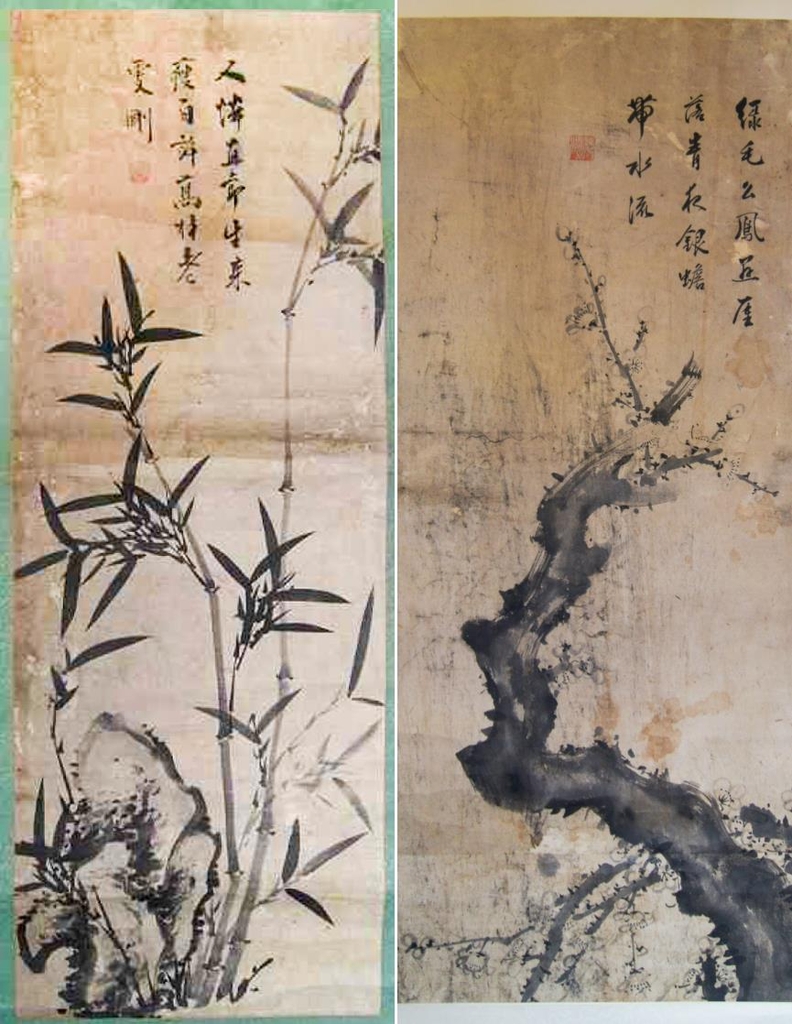 人憐直節生來
瘦自許高材老
更剛
綠毛么鳳厓
落青夜銀蟾
帶水流